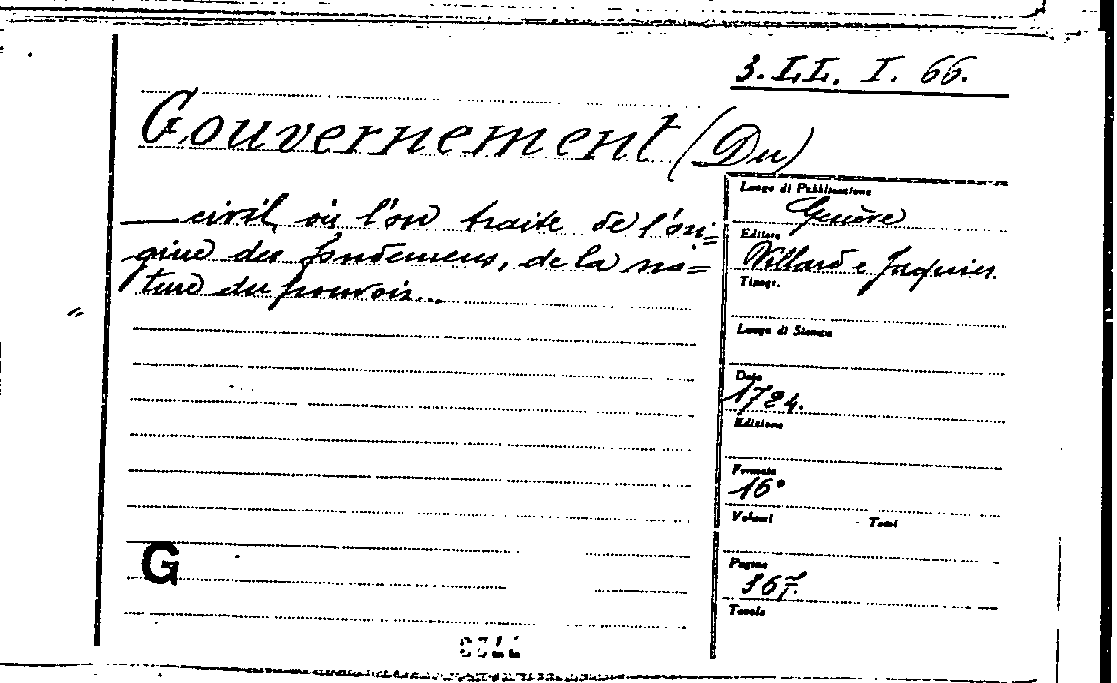 3. LL. I. 66.
Gouvernement (Du)
— civil, où l'on traite de l'ori=
gine des fondemens, de la na=
ture du pouvoir...
Luogo di Pubblicazione
Genève
Editore
Villard e Jaquier.
Tipogr.
Luogo di Stampa
Data
1724.
Edizione
Formato
16°
Volumi Tomi
Pagine
367.
Tavole
G